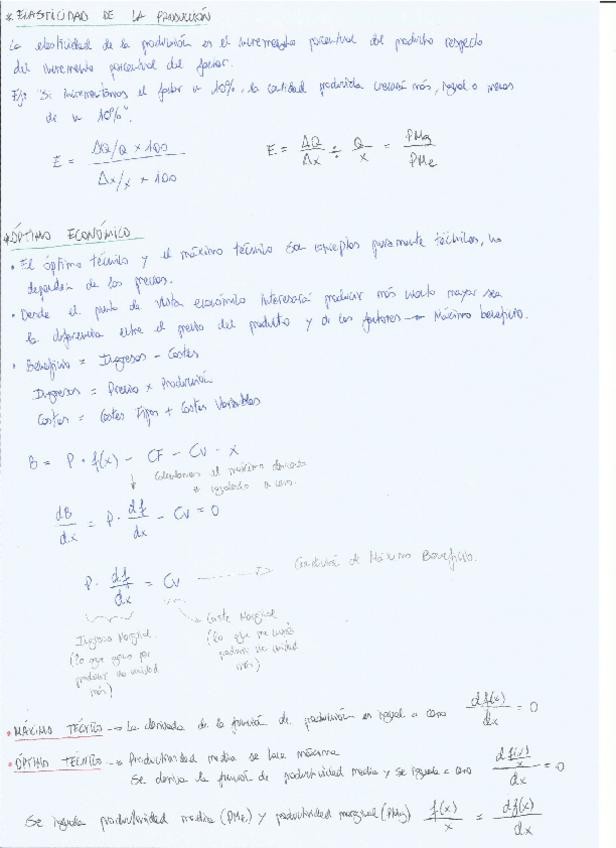 * ELASTICIDAD DE LA PRODUCCIÓN
La elasticidad de la producción es el incremento porcentual del producto respecto
del incremento porcentual del factor.
Ej: "Si incrementamos el factor un 10%, la cantidad producida crecerá más, igual o menos
de un 10%".
E = ΔQ/Q × 100 / Δx/x × 100
E = ΔQ/Δx ÷ Q/x = PMg/PMe
* ÓPTIMO ECONÓMICO
• El óptimo técnico y el máximo técnico son conceptos puramente técnicos, no
dependen de los precios.
• Desde el punto de vista económico interesará producir más cuanto mayor sea
la diferencia entre el precio del producto y de los factores → Máximo beneficio.
• Beneficio = Ingresos - Costes
Ingresos = Precio × Producción
Costes = Costes Fijos + Costes Variables
B = P · f(x) - CF - Cv · x
Calculamos el máximo derivando
e igualando a cero.
dB/dx = P · df/dx - Cv = 0
P · df/dx = Cv ---→ Condición de Máximo Beneficio.
Ingreso Marginal.
(lo que gano por
producir una unidad
más)
Coste Marginal
(lo que me cuesta
producir una unidad
más)
• MÁXIMO TÉCNICO → La derivada de la función de producción es igual a cero df(x)/dx = 0
• ÓPTIMO TÉCNICO → Productividad media se hace máxima
Se deriva la función de productividad media y se iguala a cero d f(x)/x / dx = 0
Se iguala productividad media (PMe) y productividad marginal (PMg) f(x)/x = df(x)/dx